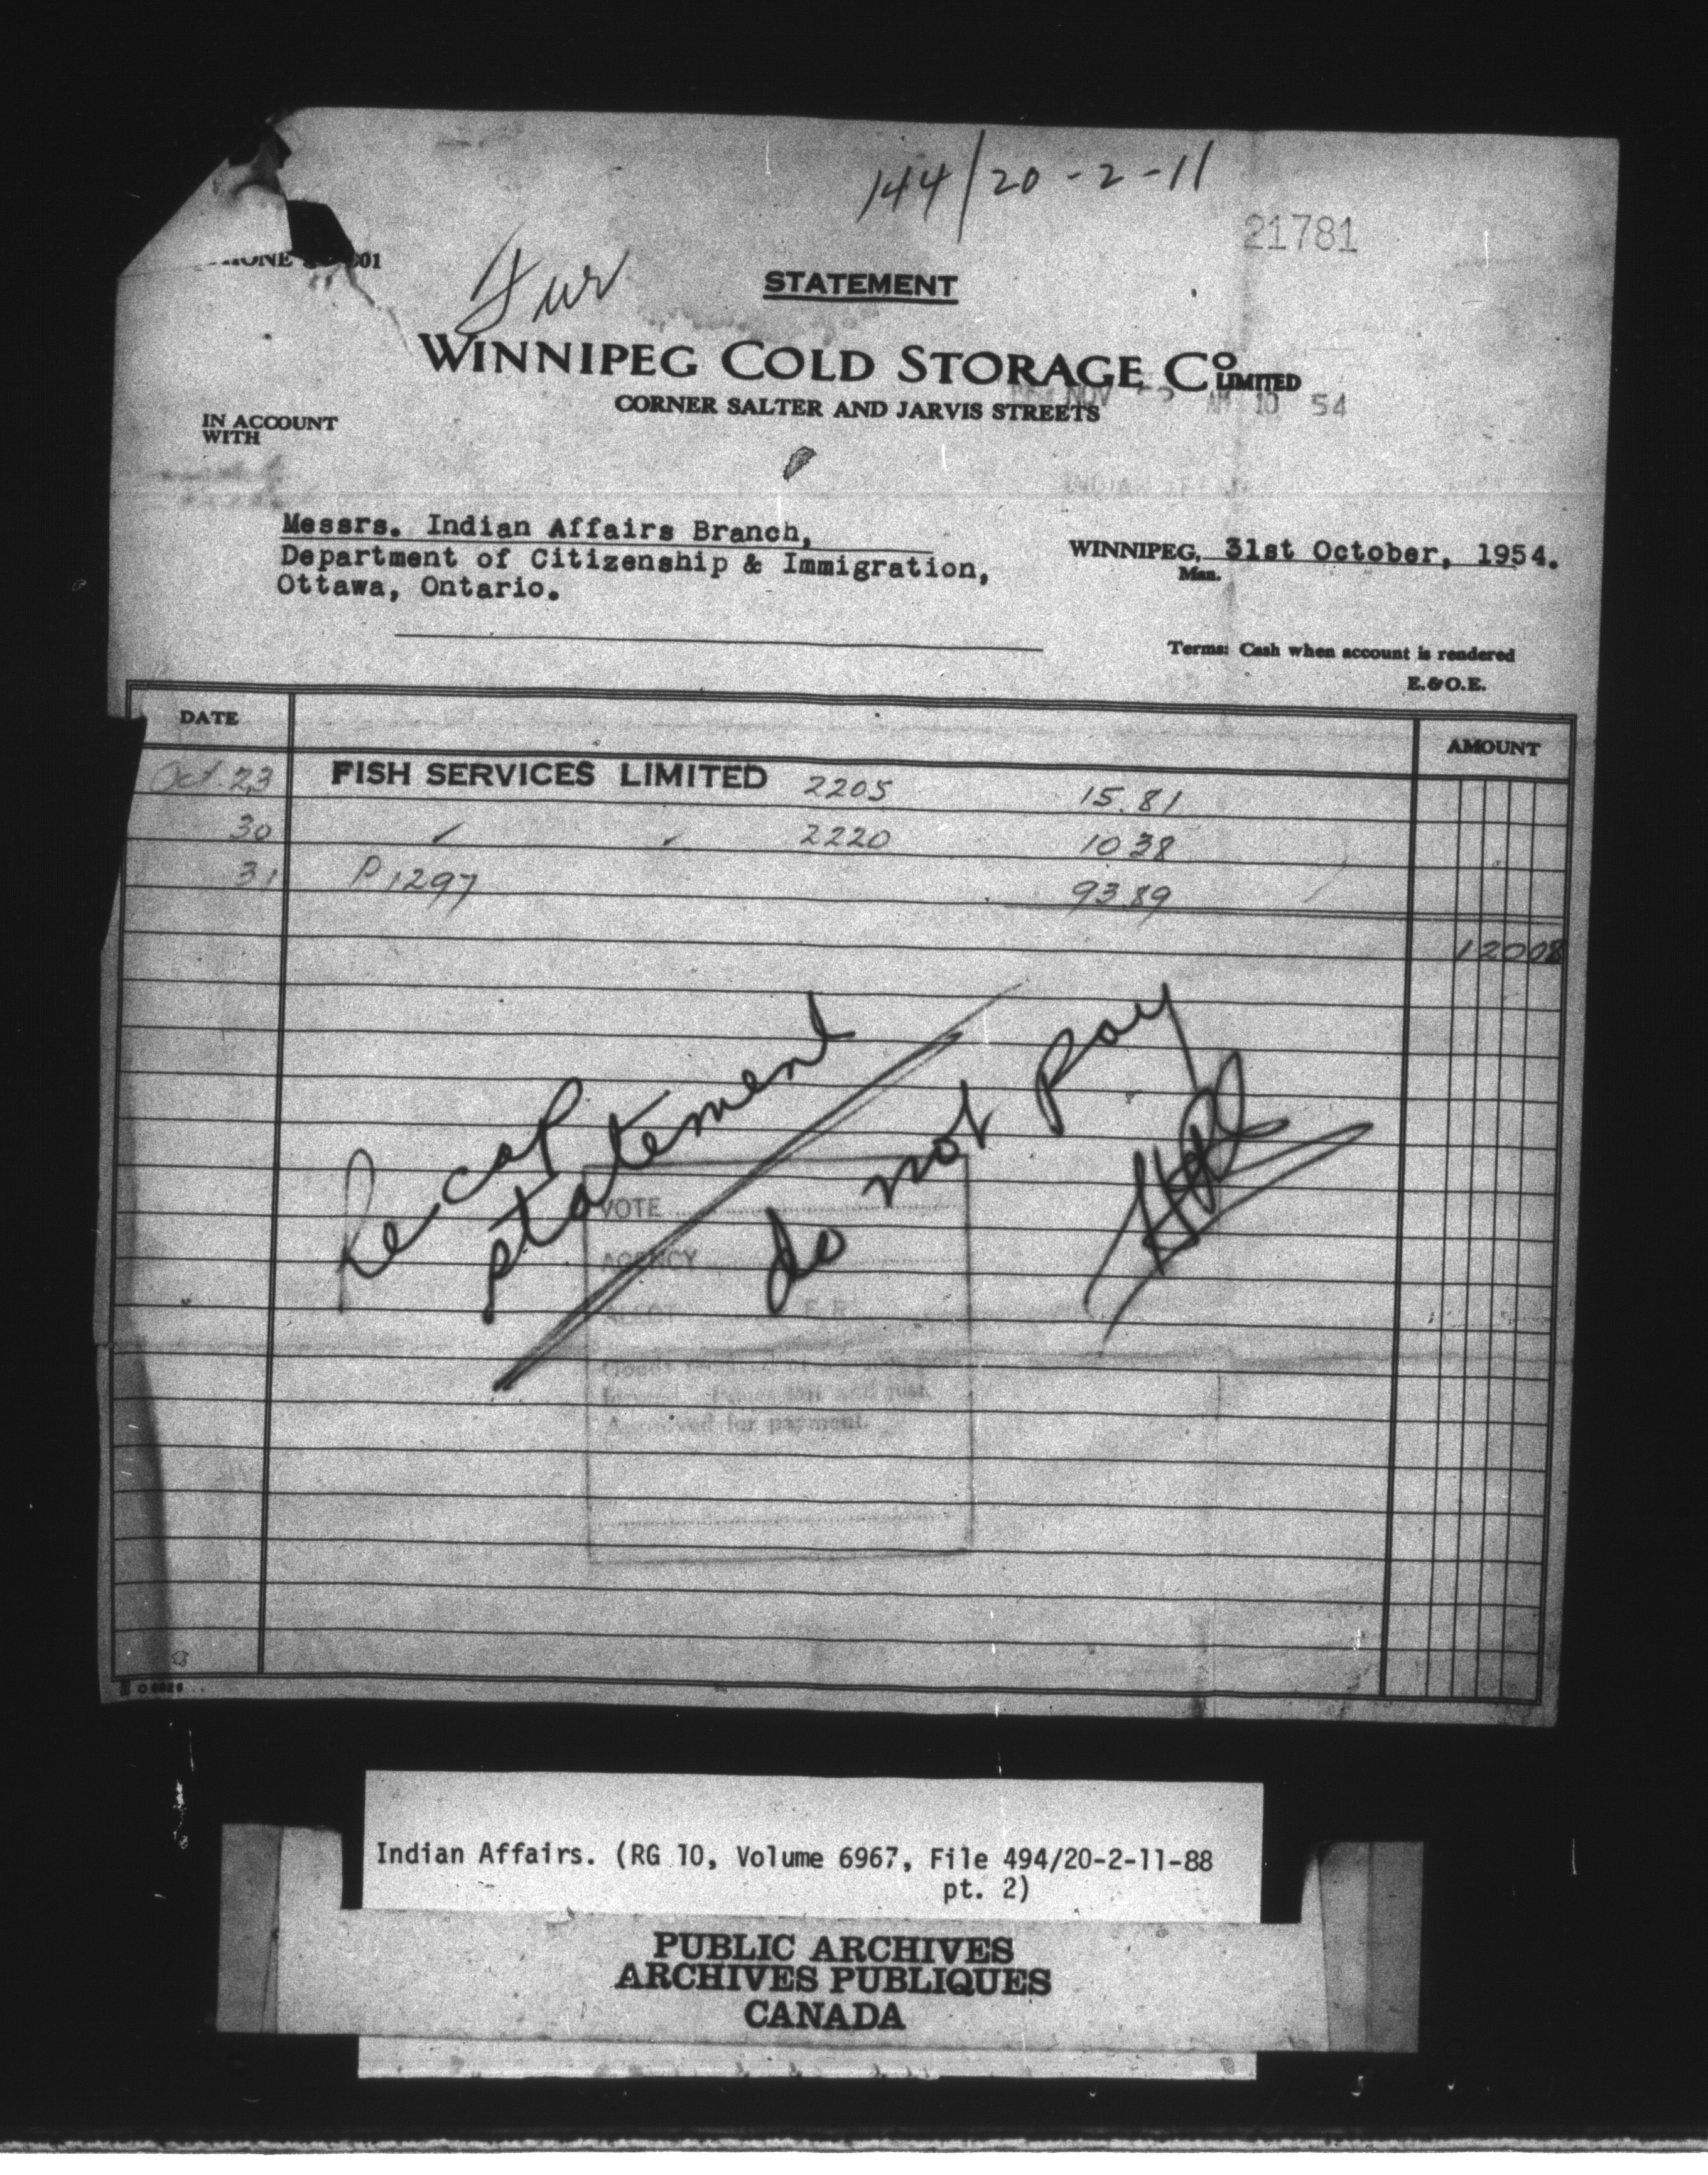 144/20-2-11
21781
Fur
STATEMENT
WINNIPEG COLD STORAGE Co LIMITED
CORNER SALTER AND JARVIS STREETS
NOV AM 10 54
IN ACCOUNT
WITH
Messrs. Indian Affairs Branch,
Department of Citizenship & Immigration,
Ottawa, Ontario.
WINNIPEG, 31st October, 1954.
Man.
Terms: Cash when account is rendered
E.&O.E.
DATE AMOUNT
Oct. 23 FISH SERVICES LIMITED 2205 15.81
30 " " 2220 10 38
31 P 1297 93.89
120 08
Re-cap
statement
do not pay
VOTE
AGENCY
F. R.
fair and just.
Approved for payment.
Indian Affairs. (RG 10, Volume 6967, File 494/20-2-11-88
pt. 2)
PUBLIC ARCHIVES
ARCHIVES PUBLIQUES
CANADA